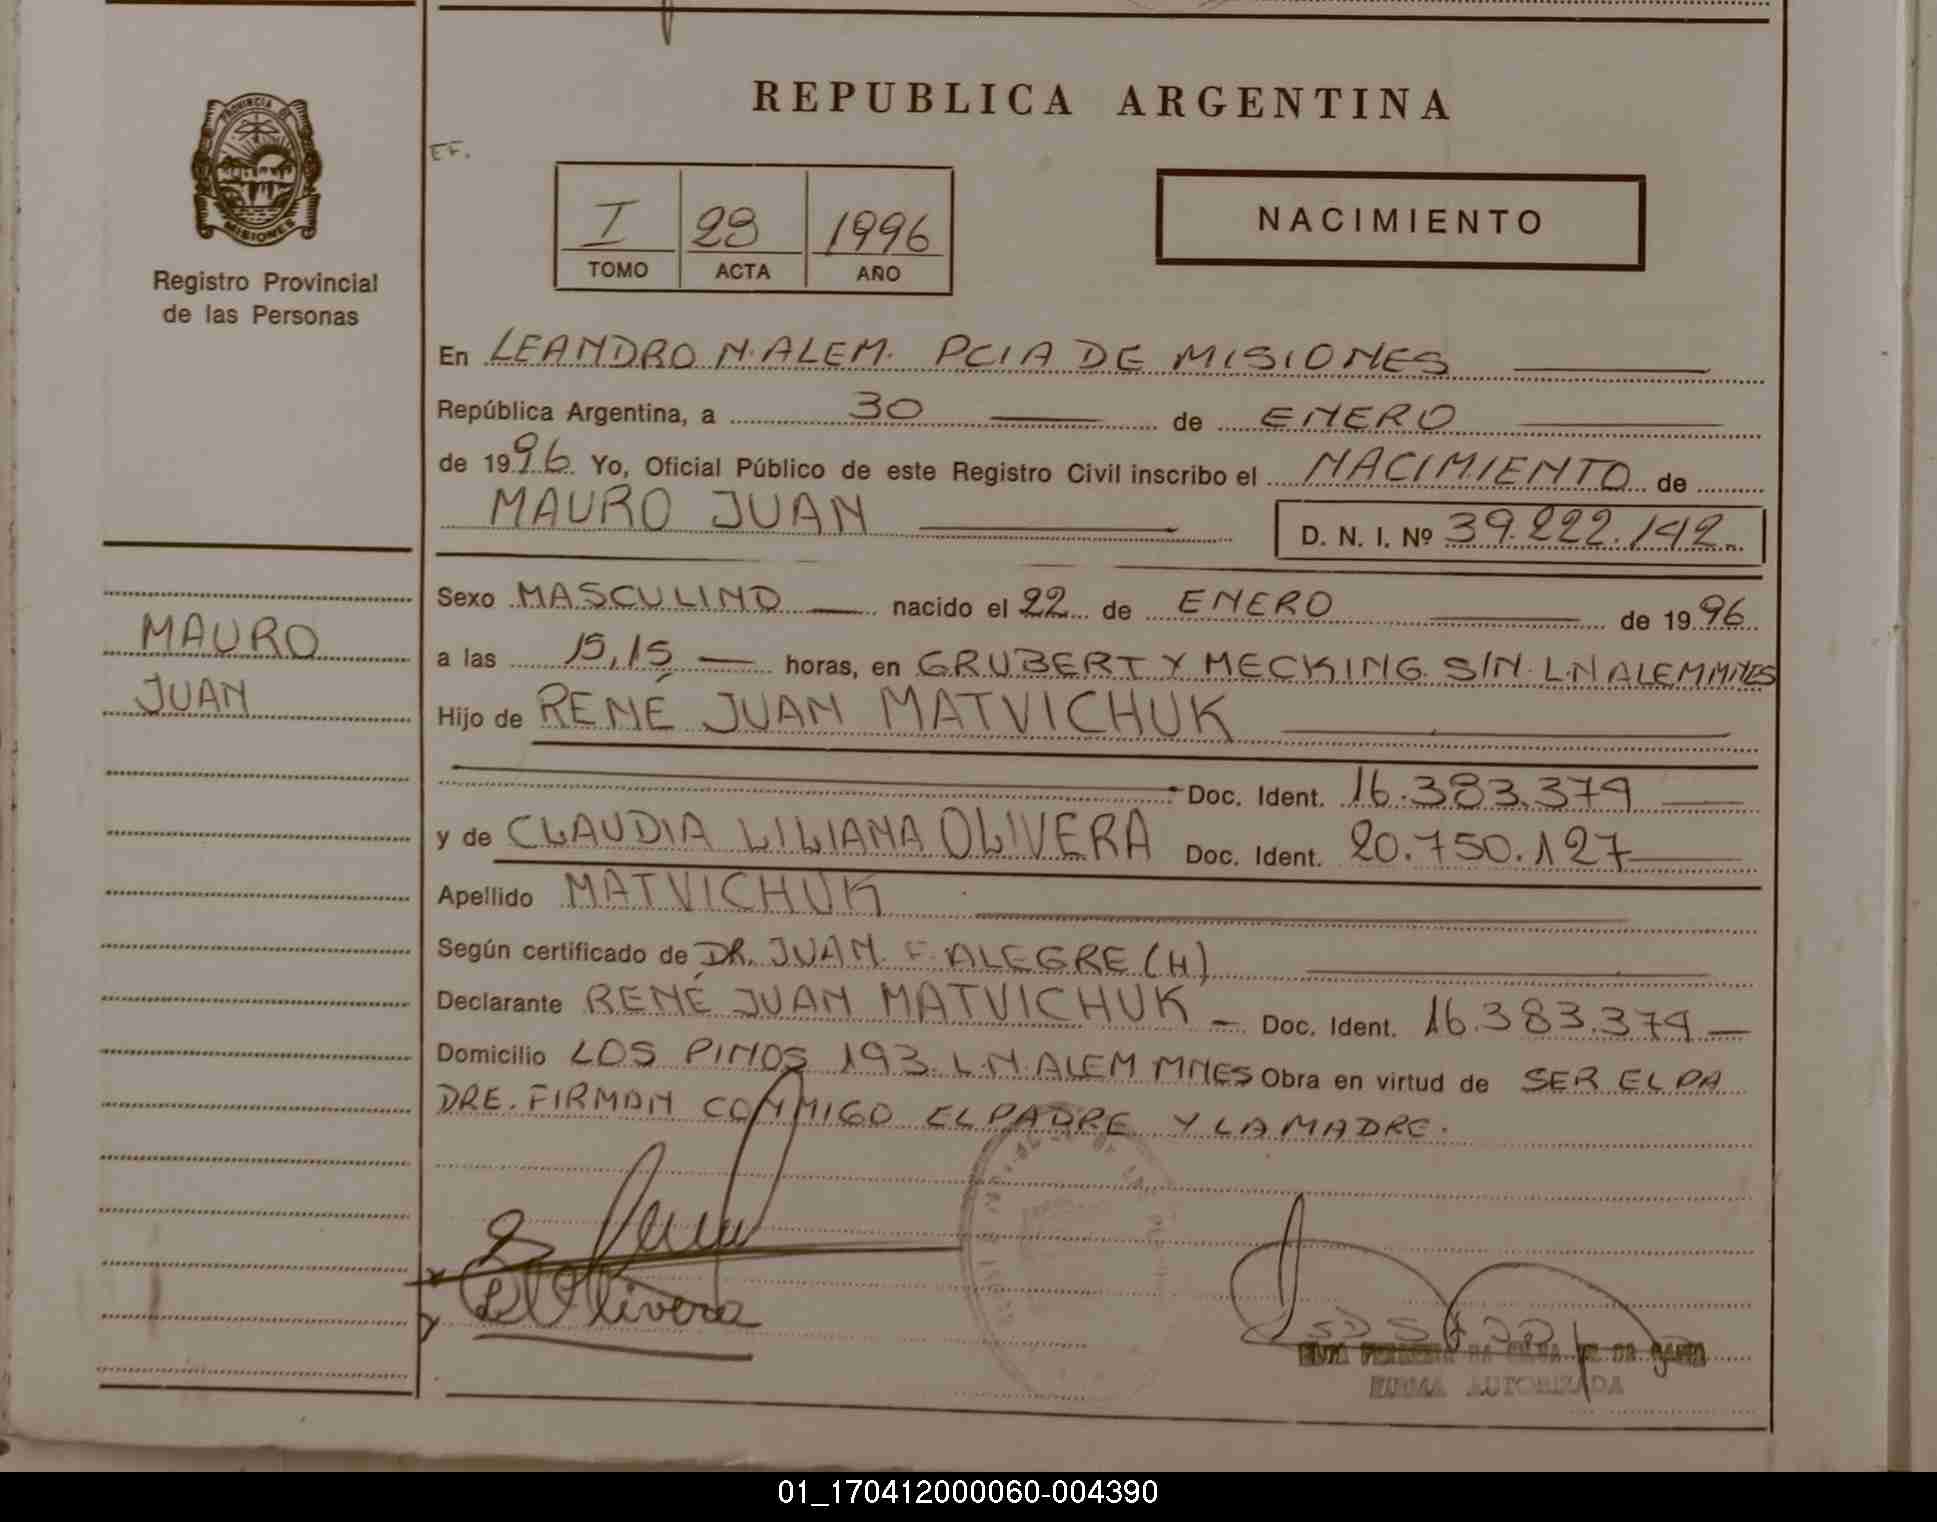 REPUBLICA ARGENTINA
PROVINCIA DE
MISIONES
Registro Provincial
de las Personas
EF.
I 29 1996
TOMO ACTA AÑO
NACIMIENTO
En LEANDRO N. ALEM. PCIA DE MISIONES
República Argentina, a 30 de ENERO
de 1996 Yo, Oficial Público de este Registro Civil inscribo el NACIMIENTO de
MAURO JUAN D. N. I. Nº 39.222.142
Sexo MASCULINO nacido el 22 de ENERO de 1996
MAURO
JUAN
a las 15,15 horas, en GRUBERT Y MECKING S/N. L N ALEM MNES
Hijo de RENÉ JUAN MATVICHUK
Doc. Ident. 16.383.379
y de CLAUDIA LILIANA OLIVERA Doc. Ident. 20.750.127
Apellido MATVICHUK
Según certificado de DR. JUAN F. ALEGRE (H)
Declarante RENÉ JUAN MATVICHUK Doc. Ident. 16.383.379
Domicilio LOS PINOS 193 L.N. ALEM MNES Obra en virtud de SER EL PA
DRE. FIRMAN CONMIGO EL PADRE Y LA MADRE.
Olivera
FIRMA AUTORIZADA
01_170412000060-004390